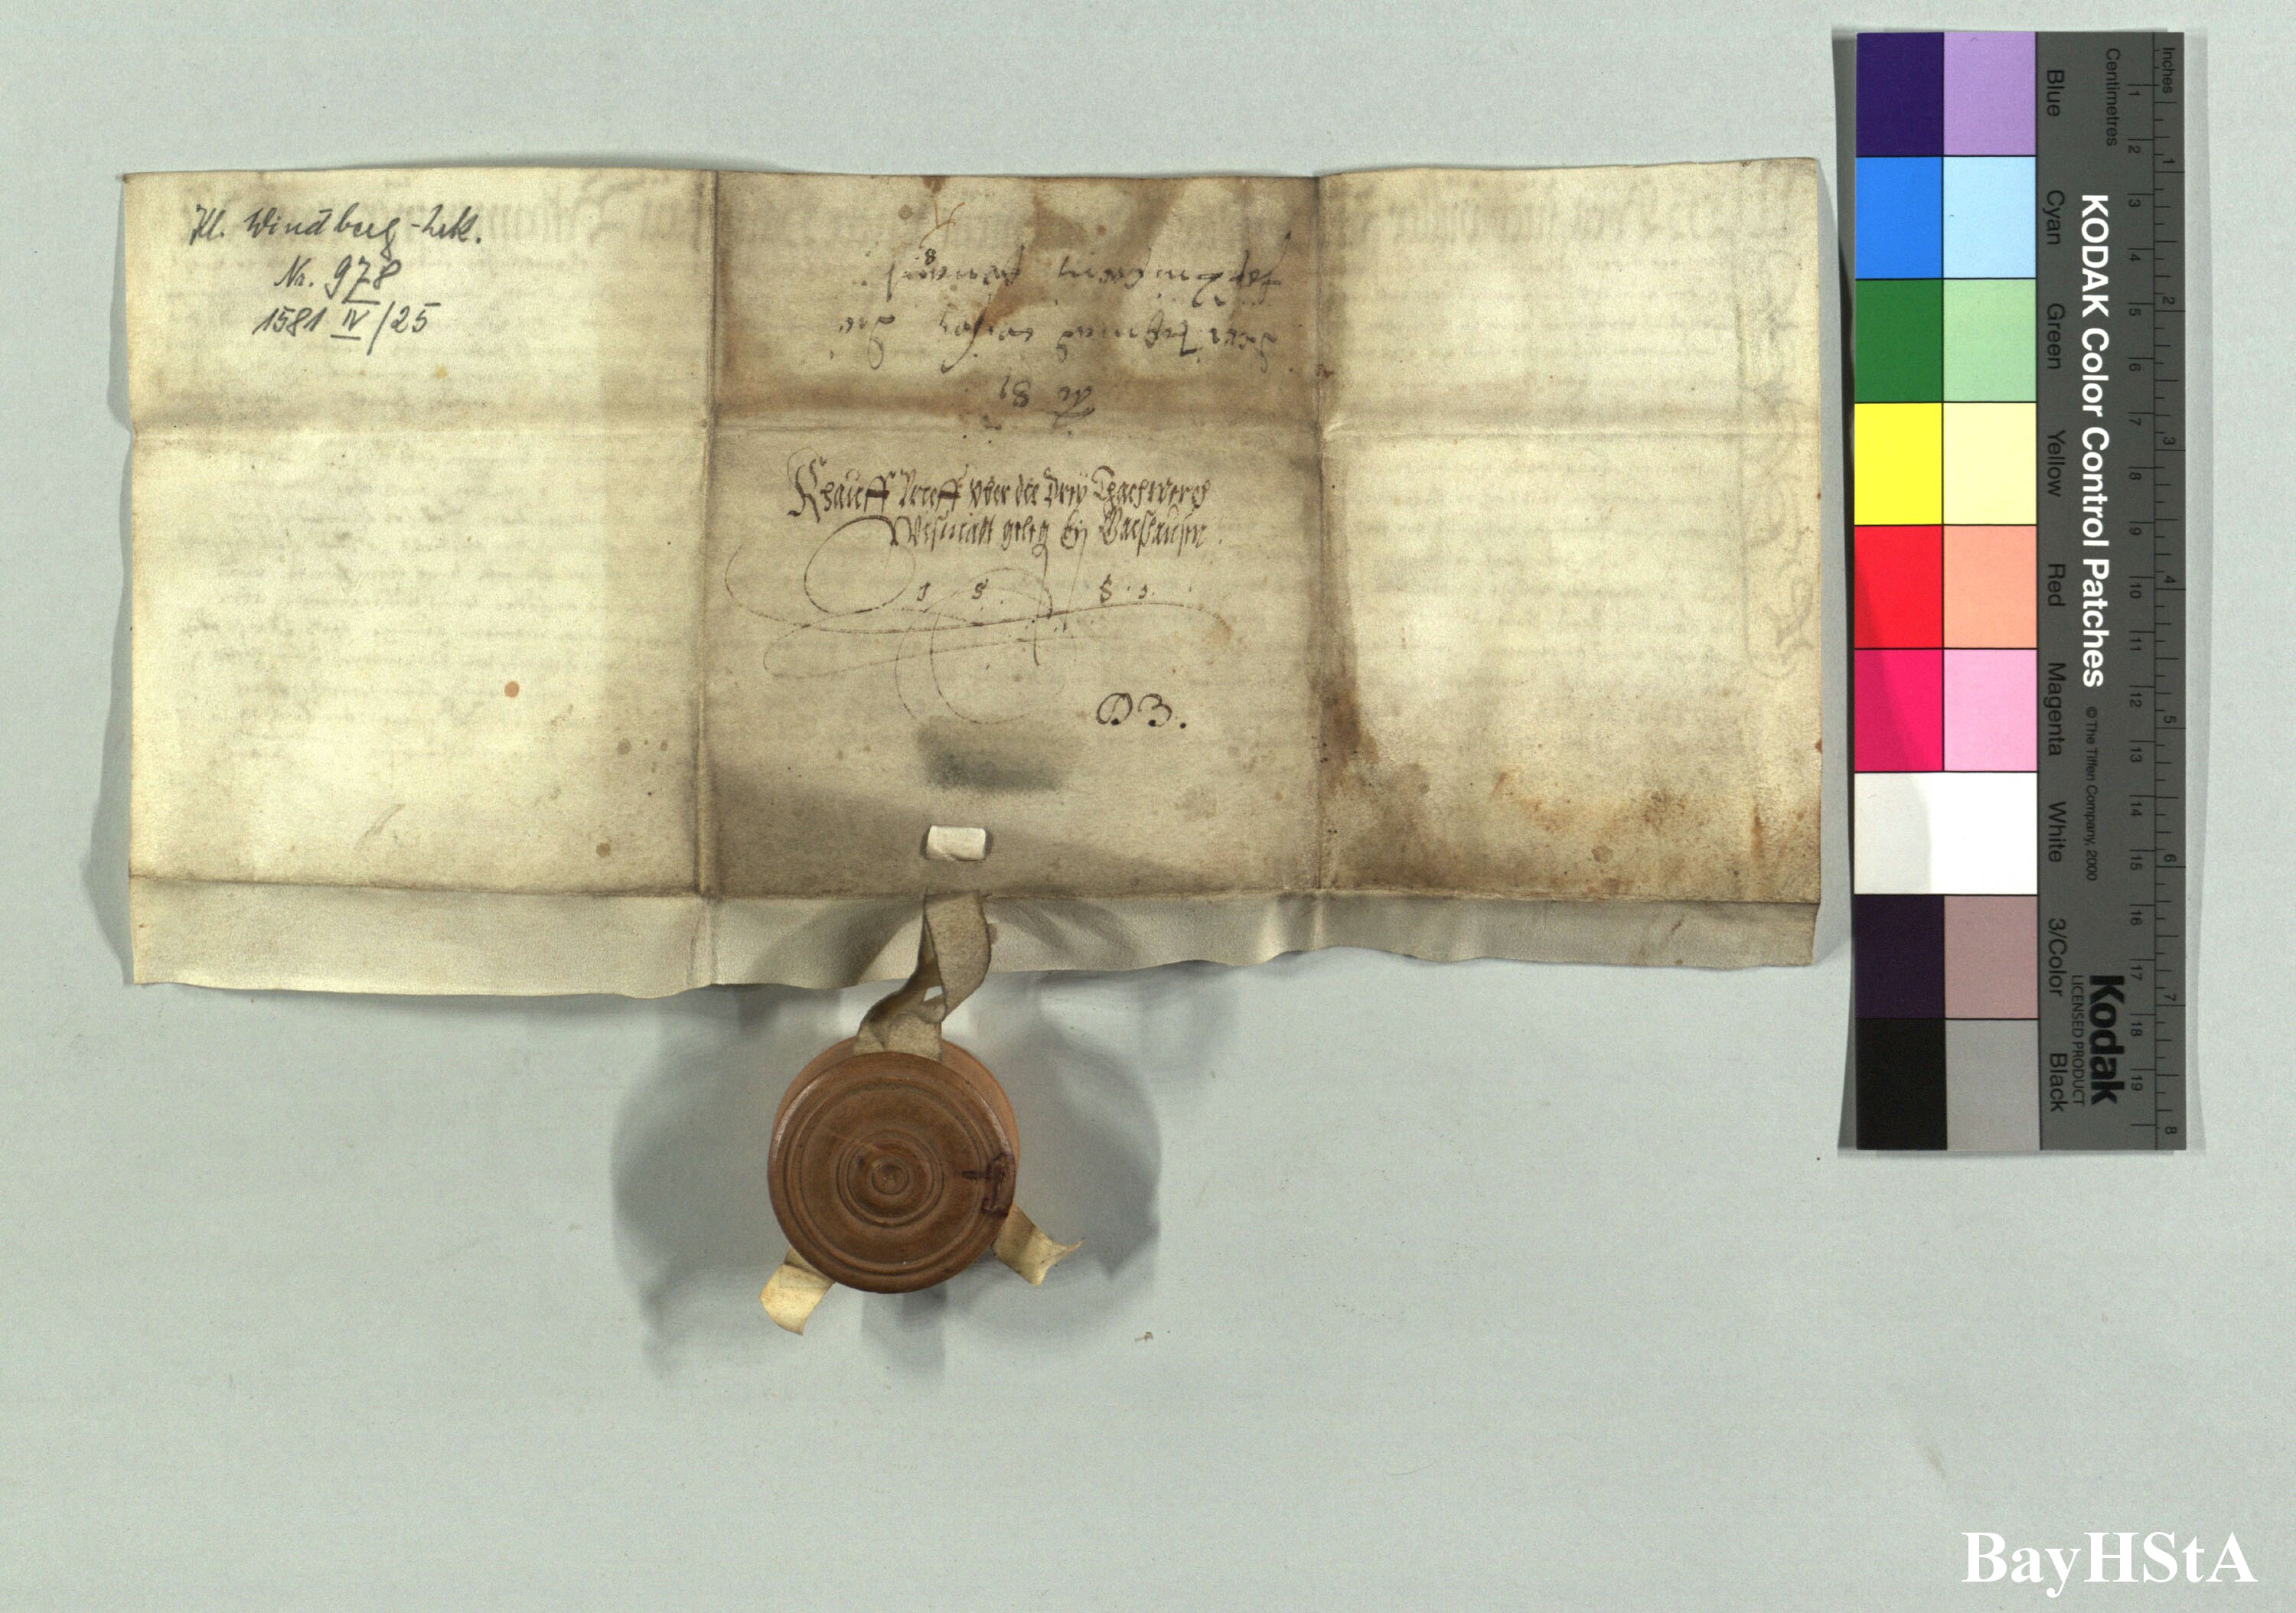 Kl. Windberg-Urk.
Nr. 978
1581 IV/25
Khauff Brieff vber die Drey Tagwerch
Wismatt geleg bey
1 5 8 1.
D3.
Ao 81
KODAK Color Control Patches
© The Tiffen Company, 2000
Kodak
LICENSED PRODUCT
Inches
1 2 3 4 5 6 7 8
Centimetres
1 2 3 4 5 6 7 8 9 10 11 12 13 14 15 16 17 18 19
Blue
Cyan
Green
Yellow
Red
Magenta
White
3/Color
Black
BayHStA